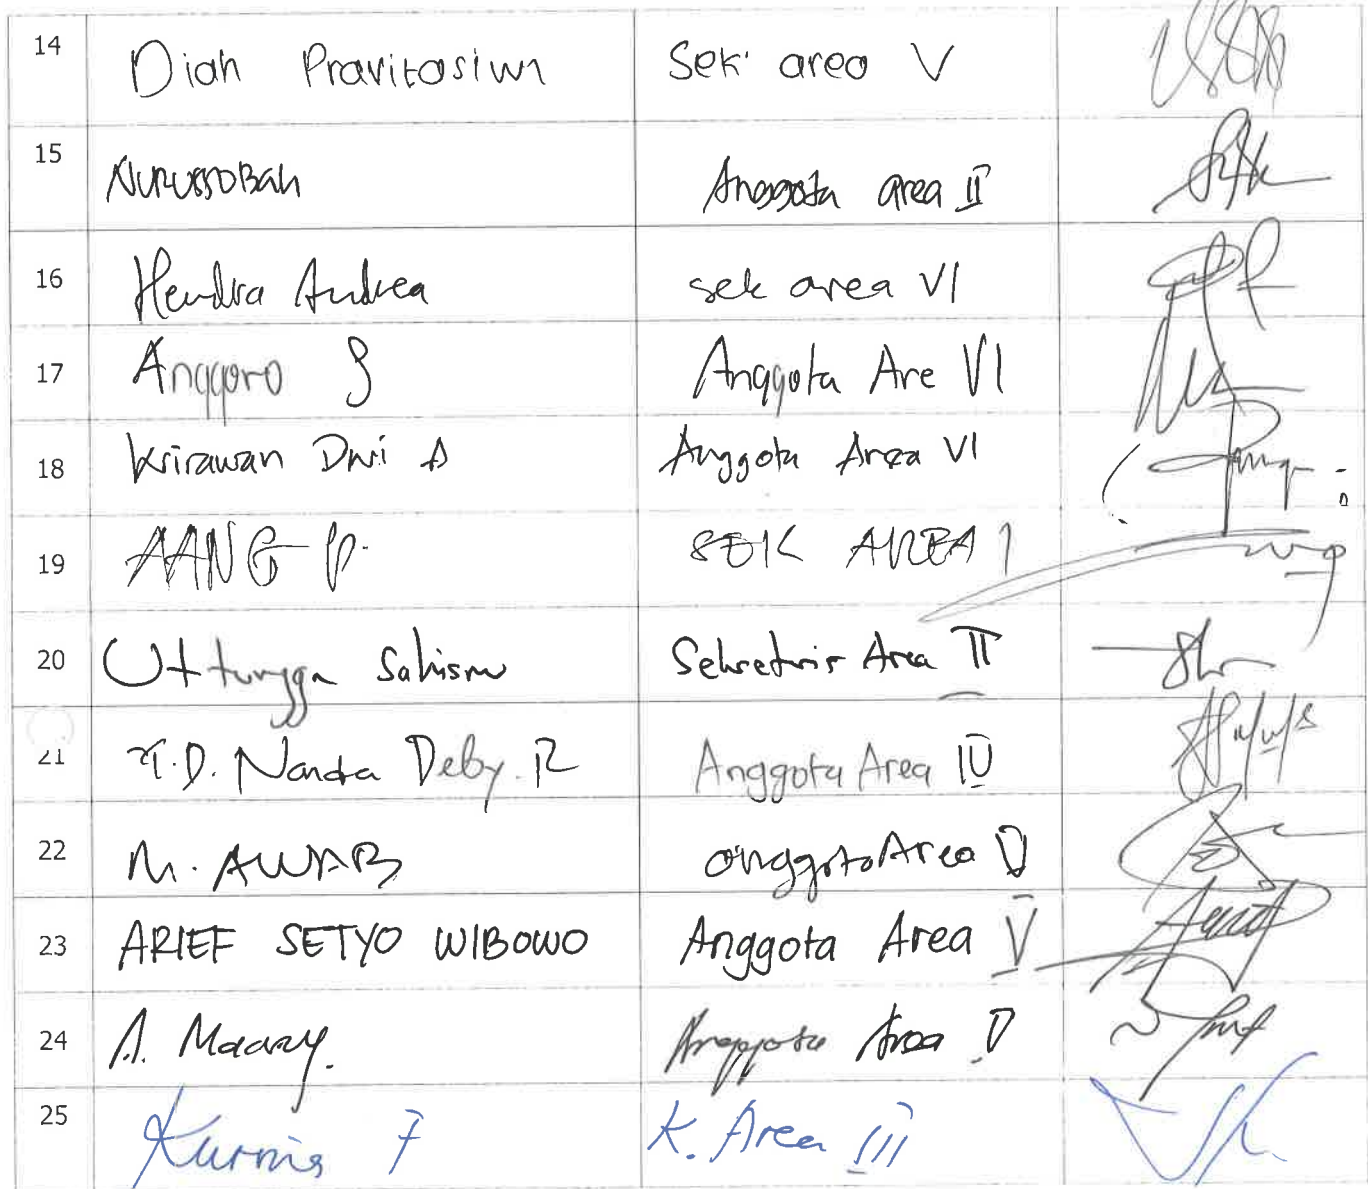 14 Diah Pravitasiwi Sek area V
15 NURUSSOBAH Anggota area II
16 Hendra Andrea sek area VI
17 Anggoro S Anggota Are VI
18 Krirawan Dwi A Anggota Area VI
19 AANG P. SEK AREA 1
20 Uttungga Sekretaris Area II
21 T.D. Nanda Deby. R Anggota Area IV
22 M. AWAB anggota Area V
23 ARIEF SETYO WIBOWO Anggota Area V
24 A. Anggota Area V
25 Kurnia F K. Area III